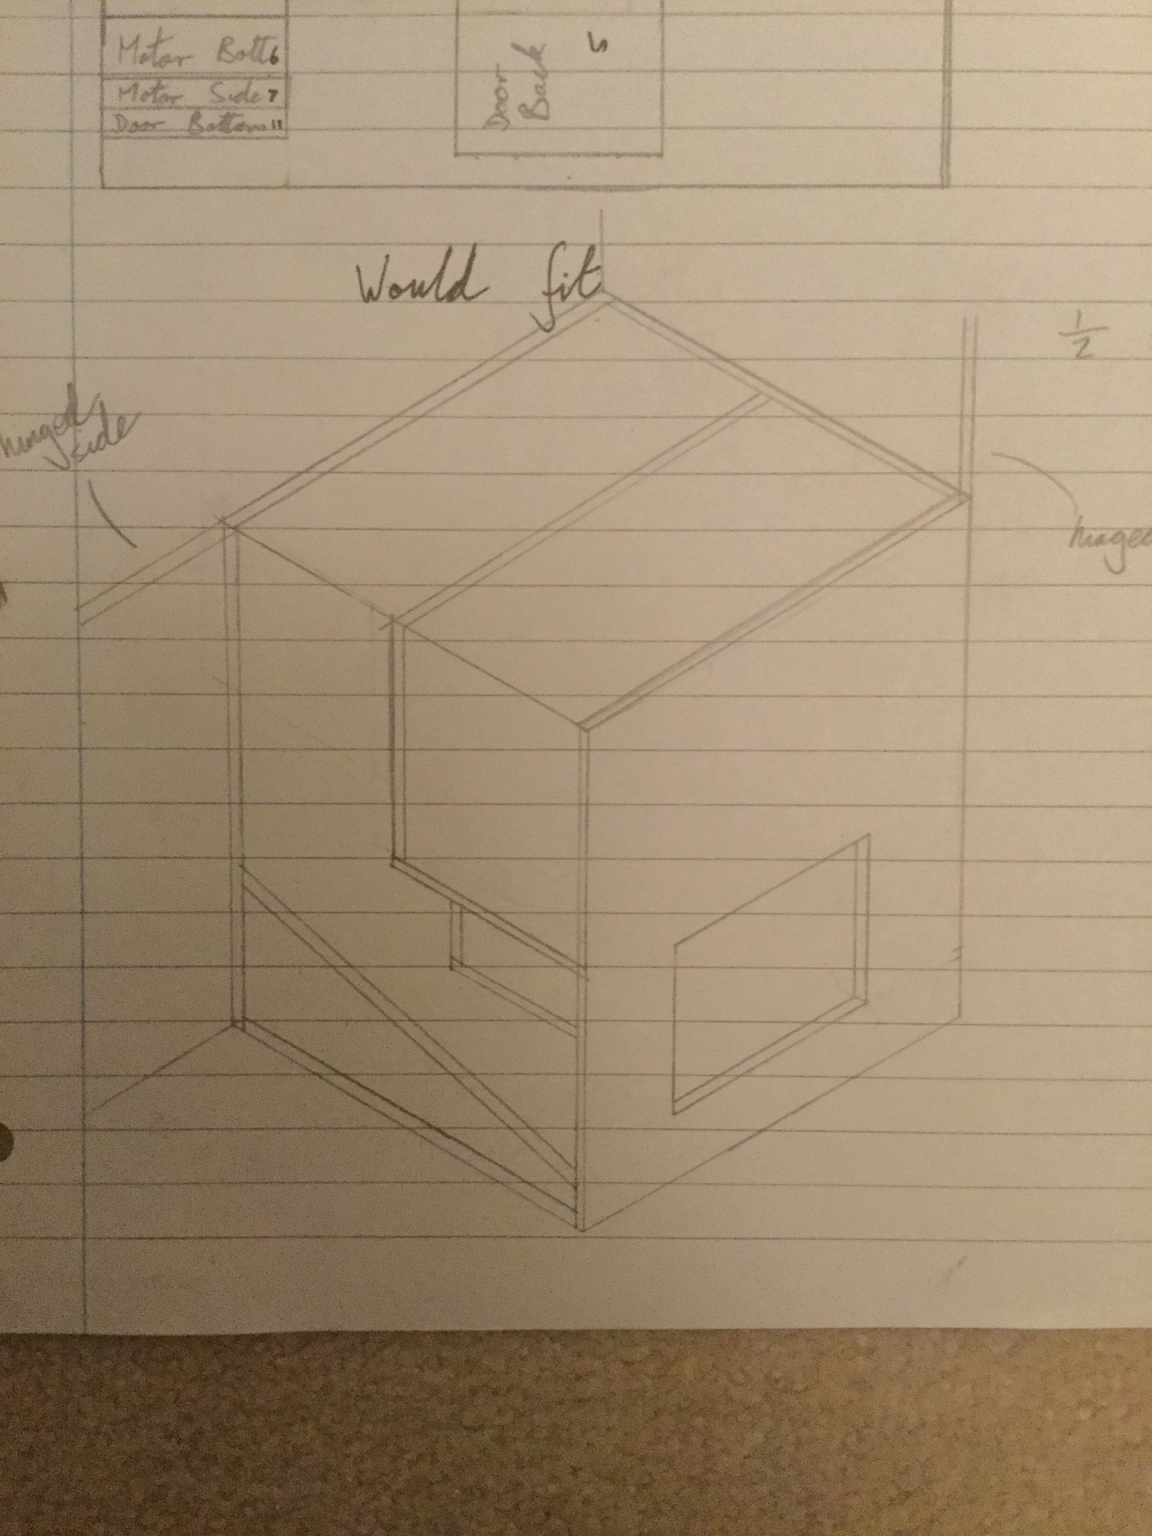 Motor Bott 6
Motor Side 7
Door Bottom 11
Door
Back
5
Would fit
1/2
hinged
side
hinged